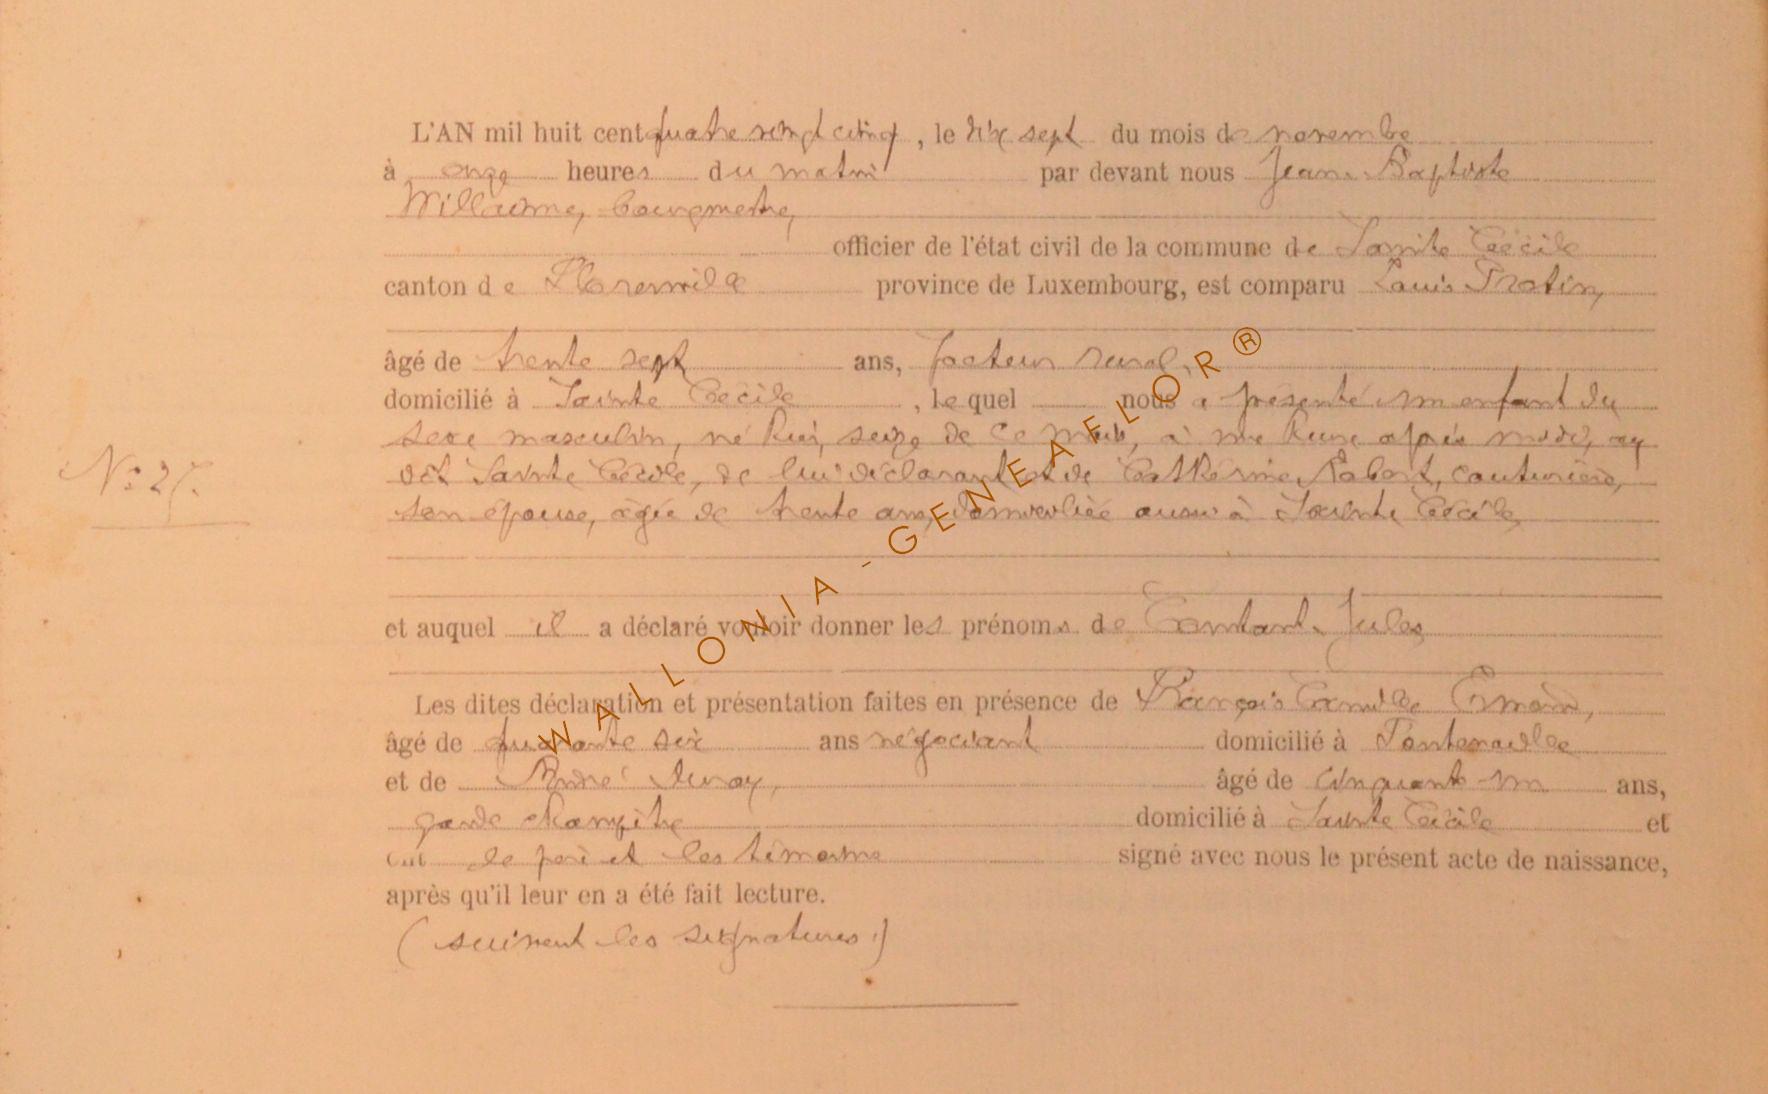 L'AN mil huit cent quatre vingt cinq, le dix sept du mois de novembre
à onze heures du matin par devant nous Jean Baptiste
Willaime, bourgmestre,
officier de l'état civil de la commune de Sainte Cécile
canton de Florenville province de Luxembourg, est comparu Louis Protin,
âgé de trente sept ans, facteur rural,
domicilié à Sainte Cécile, lequel nous a présenté un enfant du
sexe masculin, né hier, seize de ce mois, à une heure après midi, au
dit Sainte Cécile, de lui déclarant et de Catherine Robert, couturière,
son épouse, âgée de trente ans, domiciliée aussi à Sainte Cécile,
N° 25.
et auquel il a déclaré vouloir donner les prénoms de Constant Jules
Les dites déclaration et présentation faites en présence de François Camille
âgé de quarante six ans négociant domicilié à Fontenoille
et de André Duroy, âgé de cinquante un ans,
garde champêtre domicilié à Sainte Cécile et
ont le père et les témoins signé avec nous le présent acte de naissance,
après qu'il leur en a été fait lecture.
(suivent les signatures.)
WALLONIA - GENEAFLOR ®